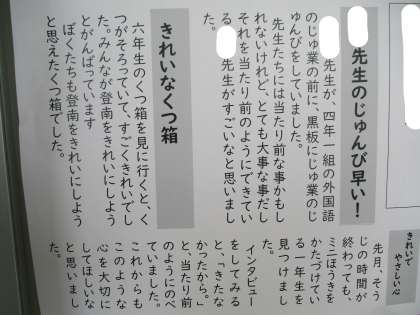 先生のじゅんび早い！
先生が、四年一組の外国語
のじゅ業の前に、黒板にじゅ業のじ
ゅんびをしていました。
先生たちには当たり前な事かもし
れないけれど、とても大事な事だし
それを当たり前のようにできてい
る
先生がすごいなと思いまし
た。
きれいなくつ箱
六年生のくつ箱を見に行くと、く
つがそろっていて、すごくきれいでし
た。みんなが登南をきれいにしよう
とがんばっています
ぼくたちも登南をきれいにしよう
と思えたくつ箱でした。
きれいで
やさしい心
先月、そう
じの時間が
終わっても、
ミニほうきを
かたづけてい
る一年生を
見つけまし
た。
インタビュー
をしてみる
と、「きたな
かったから。」
と、当たり前
のようにのべ
ていました。
これからも
このような
心を大切に
してほしいな
と思いまし